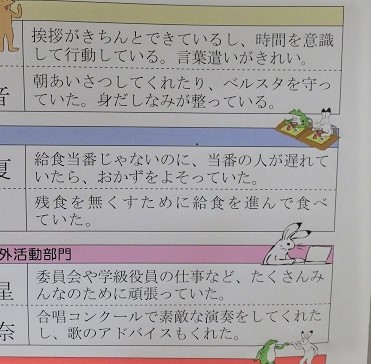 挨拶がきちんとできているし、時間を意識
して行動している。言葉遣いがきれい。
音
朝あいさつしてくれたり、ベルスタを守っ
ていた。身だしなみが整っている。
夏
給食当番じゃないのに、当番の人が遅れて
いたら、おかずをよそっていた。
残食を無くすために給食を進んで食べ
ていた。
外活動部門
星
委員会や学級役員の仕事など、たくさんみ
んなのために頑張っていた。
奈
合唱コンクールで素敵な演奏をしてくれた
し、歌のアドバイスもくれた。